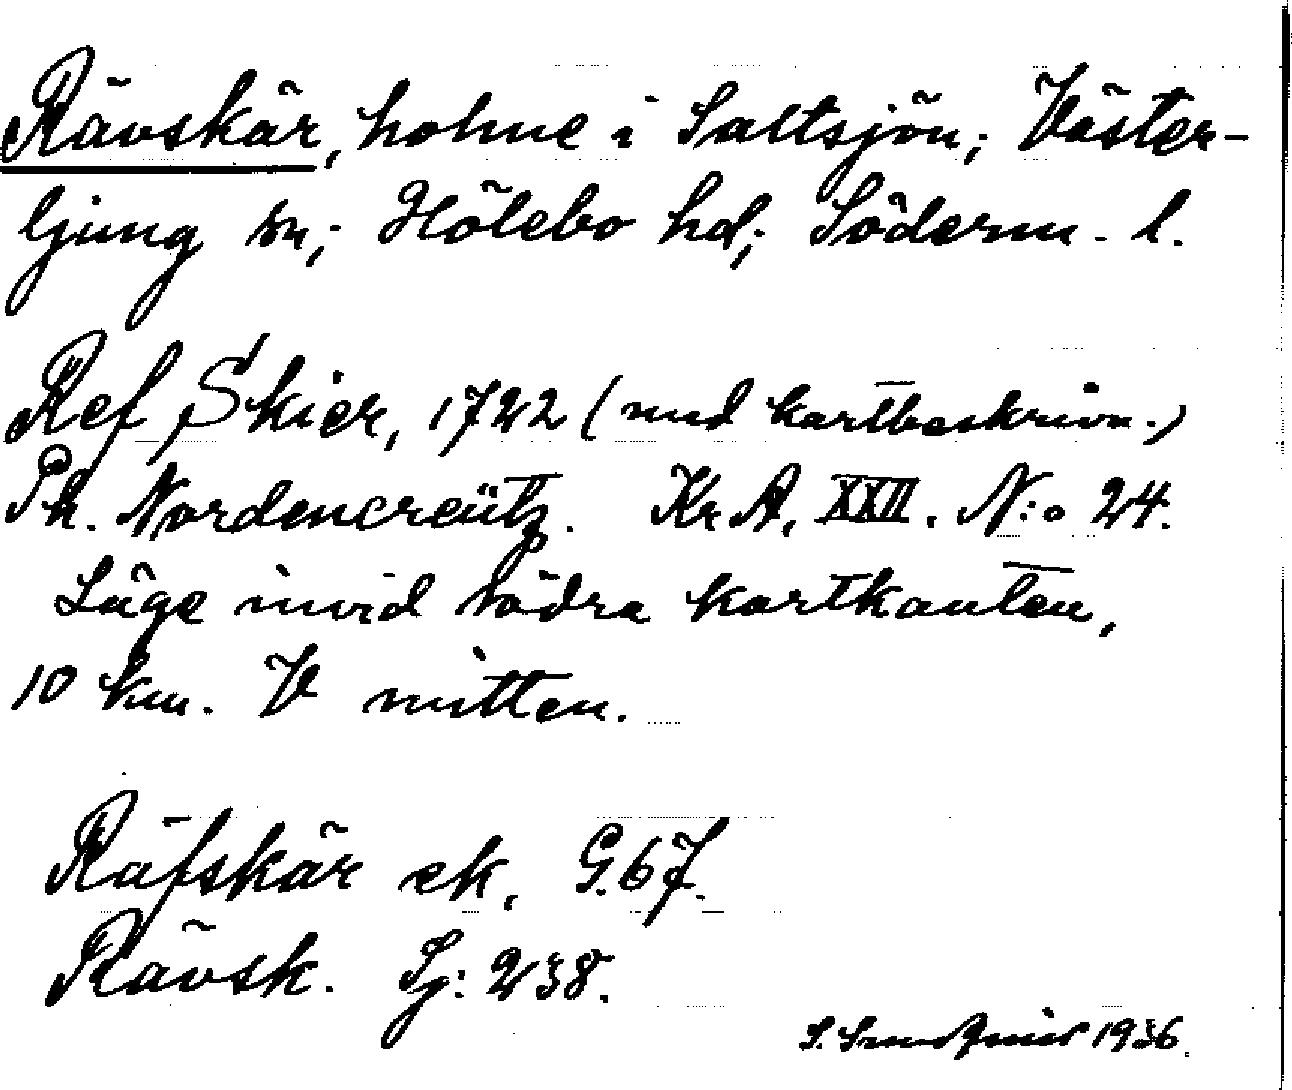 Rävskär, holme i Saltsjön; Väster-
ljung sn; Hölebo hd; Söderm. l.
Ref Skier, 1722 (med kartbeskrivn.)
Ph. Nordencreütz. Kr A, XXII. N:o 24.
Läge invid södra kartkanten,
10 km. V mitten.
Räfskär ek. G. 67.
Rävsk. Sj: 238.
S. 1936.